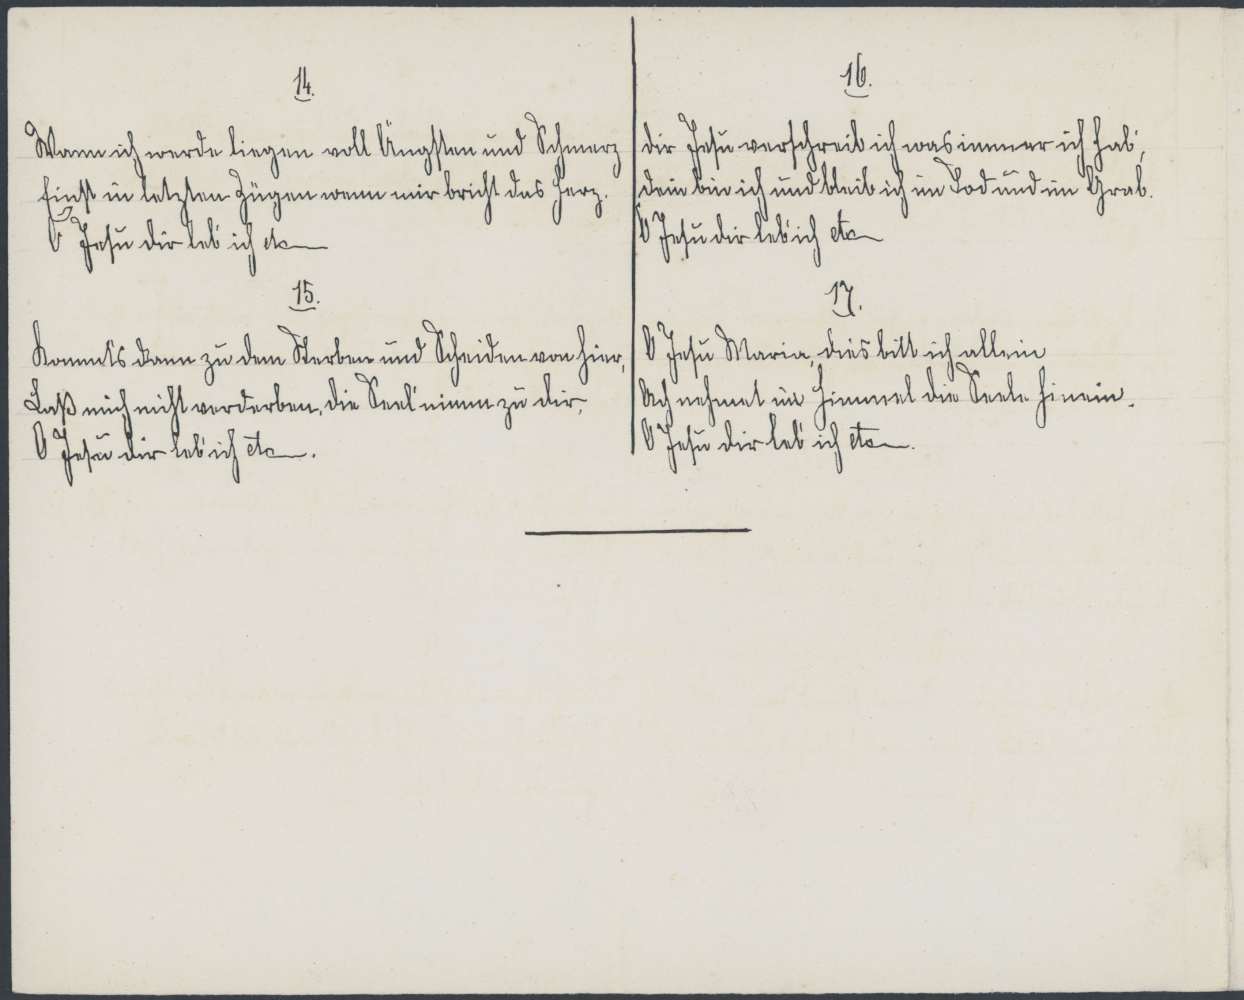 14.
Wann ich werde liegen voll Ängsten und Schmerz
Einst in letzten Zügen wenn mir bricht das Herz.
O Jesu dir leb' ich etc
15.
Kommt's dann zu dem Sterben und Scheiden von hier,
Laß mich nicht verderben, die Seel' nimm zu dir,
O Jesu dir leb' ich etc.
16.
Dir Jesu verschreib ich was immer ich hab',
dein bin ich und bleib ich im Tod und im Grab.
O Jesu dir leb' ich etc
17.
O Jesu Maria, dies bitt ich allein
Ach nehmet in Himmel die Seele hinein.
O Jesu dir leb' ich etc.